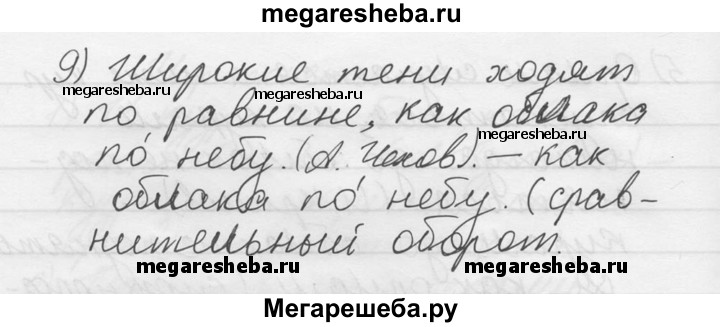 megaresheba.ru
9) Широкие тени ходят
megaresheba.ru
megaresheba.ru
по равнине, как облака
megaresheba.ru
по́ небу. (А. Чехов). – как
облака по́ небу. (срав-
нительный оборот.
megaresheba.ru
megaresheba.ru
Мегарешеба.ру